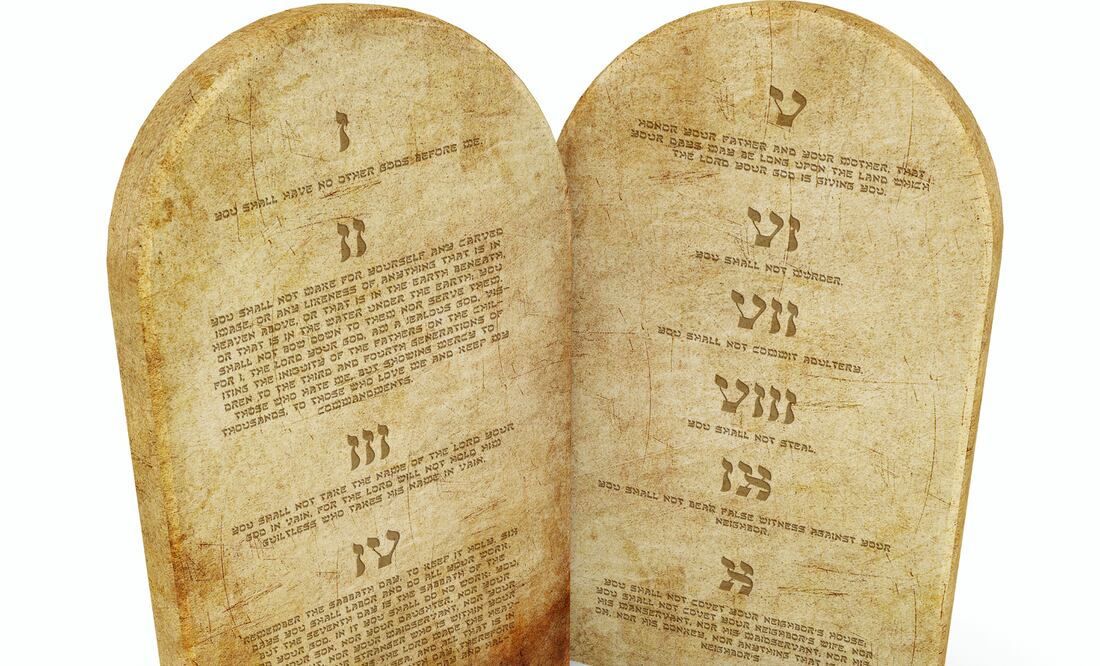 I
YOU SHALL HAVE NO OTHER GODS BEFORE ME.
II
YOU SHALL NOT MAKE FOR YOURSELF ANY CARVED
IMAGE, OR ANY LIKENESS OF ANYTHING THAT IS IN
HEAVEN ABOVE, OR THAT IS IN THE EARTH BENEATH,
OR THAT IS IN THE WATER UNDER THE EARTH; YOU
SHALL NOT BOW DOWN TO THEM NOR SERVE THEM.
FOR I, THE LORD YOUR GOD, AM A JEALOUS GOD, VIS-
ITING THE INIQUITY OF THE FATHERS ON THE CHIL-
DREN TO THE THIRD AND FOURTH GENERATIONS OF
THOSE WHO HATE ME, BUT SHOWING MERCY TO
THOUSANDS, TO THOSE WHO LOVE ME AND KEEP MY
COMMANDMENTS.
III
YOU SHALL NOT TAKE THE NAME OF THE LORD YOUR
GOD IN VAIN, FOR THE LORD WILL NOT HOLD HIM
GUILTLESS WHO TAKES HIS NAME IN VAIN.
IV
REMEMBER THE SABBATH DAY, TO KEEP IT HOLY. SIX
DAYS YOU SHALL LABOR AND DO ALL YOUR WORK,
BUT THE SEVENTH DAY IS THE SABBATH OF THE
GOD. IN IT YOU SHALL DO NO WORK: YOU,
YOUR SON, NOR YOUR DAUGHTER, NOR YOUR
NOR YOUR MAIDSERVANT, NOR YOUR
NOR STRANGER WHO IS WITHIN YOUR
THE LORD MADE THE HEAV-
SEA, AND ALL THAT IS IN
DAY AND HEREFORE
V
HONOR YOUR FATHER AND YOUR MOTHER, THAT
YOUR DAYS MAY BE LONG UPON THE LAND WHICH
THE LORD YOUR GOD IS GIVING YOU.
VI
YOU SHALL NOT MURDER.
VII
YOU SHALL NOT COMMIT ADULTERY.
VIII
YOU SHALL NOT STEAL.
IX
YOU SHALL NOT BEAR FALSE WITNESS AGAINST YOUR
NEIGHBOR.
X
YOU SHALL NOT COVET YOUR NEIGHBOR'S HOUSE;
YOU SHALL NOT COVET YOUR NEIGHBOR'S WIFE, NOR
HIS MANSERVANT, NOR HIS MAIDSERVANT, NOR HIS
OX, NOR HIS DONKEY, NOR ANYTHING THAT IS
NEIGHBOR'S